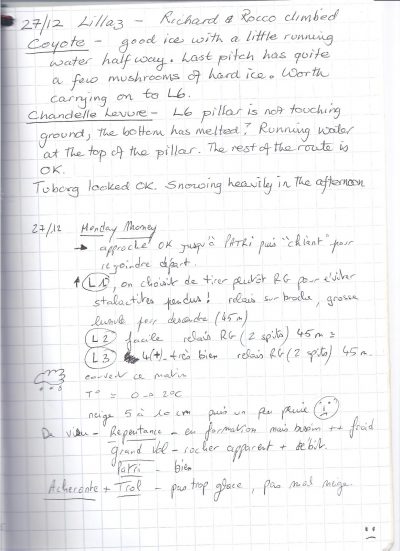 27/12 Lillaz - Richard & Rocco climbed
Coyote - good ice with a little running
water half way. Last pitch has quite
a few mushrooms of hard ice. Worth
carrying on to L6.
Chandelle Levure - L6 pillar is not touching
ground, the bottom has melted? Running water
at the top of the pillar. The rest of the route is
OK.
Tuborg looked OK. Snowing heavily in the afternoon.
27/12 Monday Money
→ approche OK jusqu'à PATRI puis "chiant" pour
rejoindre départ.
L1, on choisit de tirer plutôt RG pour éviter
stalactites pendus! relais sur broche, grosse
lunule pour descendre (45m)
L2 facile relais RG (2 spits) 45 m
L3 4(+) très bien relais RG (2 spits) 45 m.
couvert ce matin
T° = 0 → 2°C
neige 5 à 10 cm puis un peu pluie
De visu - Repentance - en formation mais besoin ++ froid
Grand Val - rocher apparent + débit.
Patri - bien
Acheronte + Trol - pas trop glace, pas mal neige.